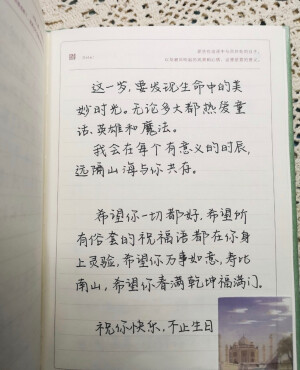 这一岁,要发现生命中的美
妙时光。无论多大都热爱童
话、英雄和魔法。
我会在每个有意义的时辰,
远隔山海与你共存。
希望你一切都好,希望所
有俗套的祝福语都在你身
上灵验,希望你万事如意,寿比
南山,希望你春满乾坤福满门。
祝你快乐,不止生日